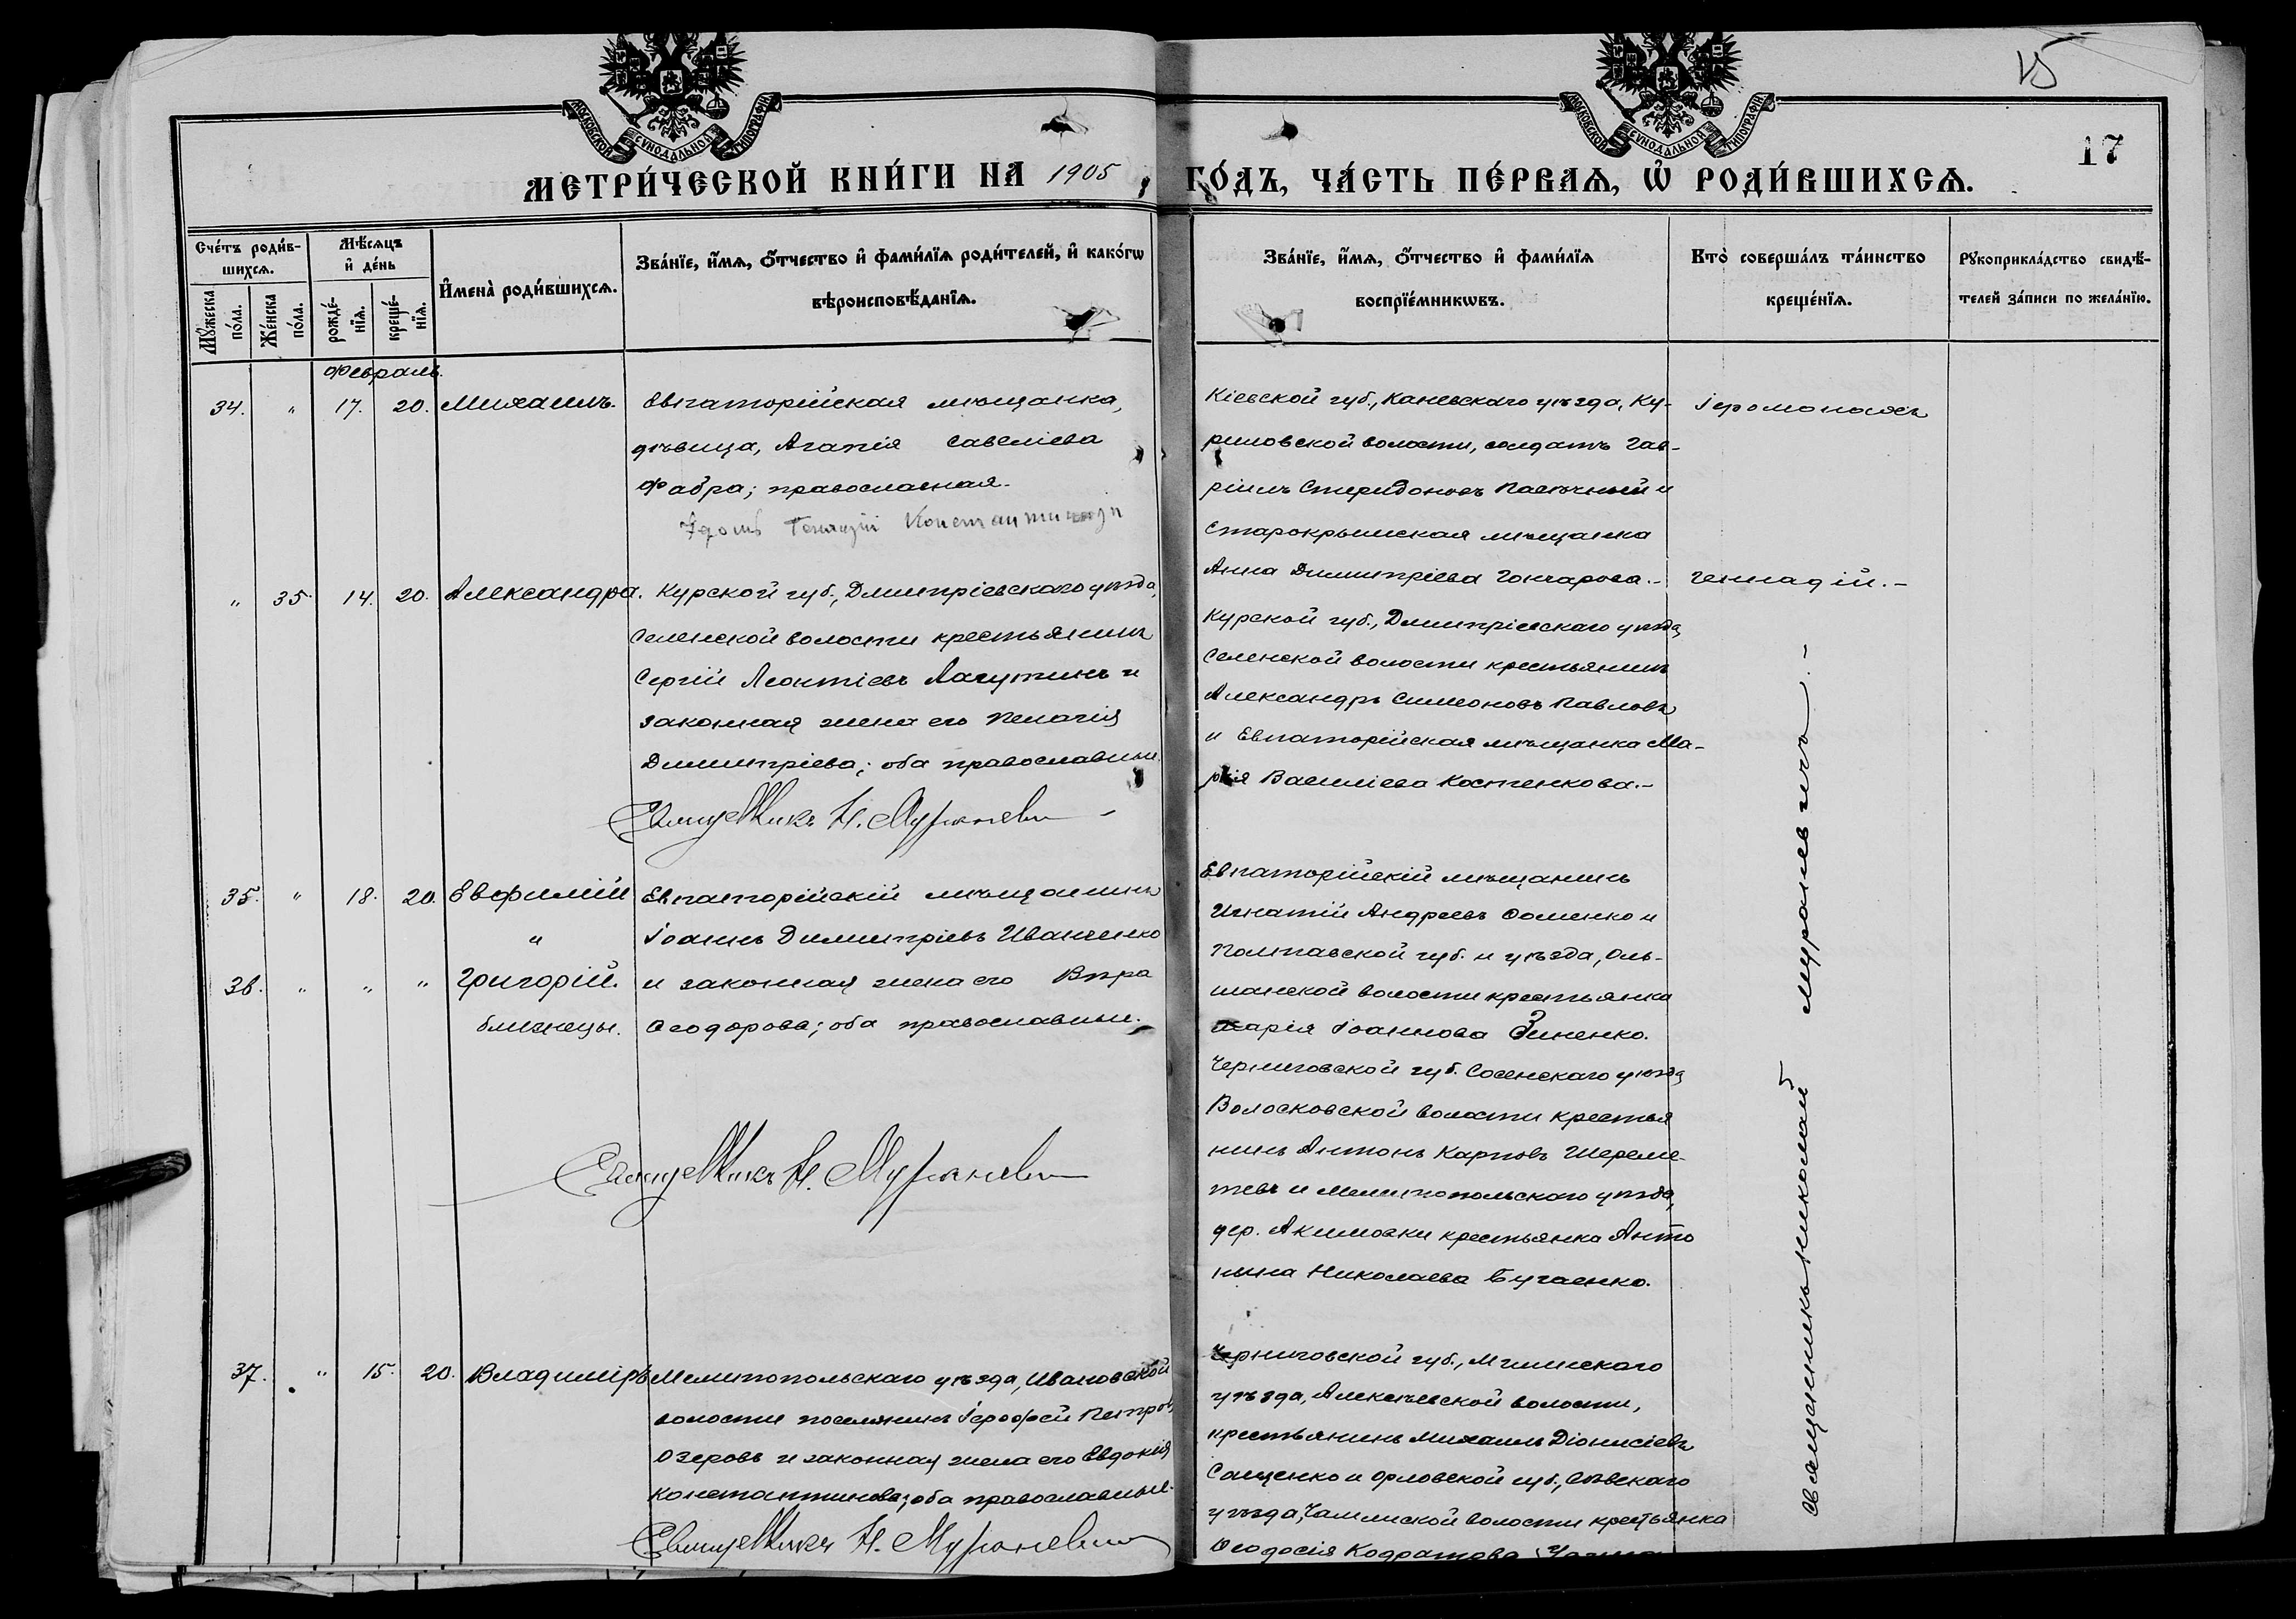 15
17
МОСКОВСКОЙ СѴНОДАЛЬНОЙ ТИПОГРАФІИ
МОСКОВСКОЙ СѴНОДАЛЬНОЙ ТИПОГРАФІИ
МЕТРИ́ЧЕСКОЙ КНИ́ГИ НА 1905 ГО́ДЪ, ЧА́СТЬ ПЕ́РВАѦ, Ѡ҆ РОДИ́ВШИХСѦ.
Сче́тъ роди́в-
шихсѧ.
Мꙋ́жеска по́ла.
Же́нска по́ла.
Мѣ́сѧцъ
и҆ де́нь
рожде́-
нїѧ.
креще́-
нїѧ.
И҆мена̀ роди́вшихсѧ.
Зва́нїе, и҆́мѧ, ѻ҆́тчество и҆ фами́лїѧ роди́телей, и҆ како́гѡ
вѣроисповѣ́данїѧ.
Зва́нїе, и҆́мѧ, ѻ҆́тчество и҆ фами́лїѧ
воспрїе́мникѡвъ.
Кто̀ соверша́лъ та́инство
креще́нїѧ.
Рꙋкоприкла́дство свидѣ́-
телей за́писи по жела́нїю.
Февраль.
34. " 17. 20. Михаилъ.
Евпаторійская мѣщанка,
дѣвица, Агапія Савеліева
Фабра; православная.
Кіевской губ., Каневскаго уѣзда, Ку-
риловской волости, солдатъ Гав-
ріилъ Спиридоновъ Пасѣчный и
Старокрымская мѣщанка
Анна Димитріева Гончарова.-
Іеромонахъ
Геннадій.-
" 35. 14. 20. Александра.
Курской губ., Дмитріевскаго уѣзда,
Селенской волости крестьянинъ
Сергій Леонтіевъ Лагутинъ и
законная жена его Пелагія
Димитріева; оба православные.
Священникъ Н. Мураневичъ
Курской губ., Дмитріевскаго уѣзда,
Селенской волости крестьянинъ
Александръ Симеоновъ Павловъ
и Евпаторійская мѣщанка Ма-
рія Василіева Костенкова.-
35. " 18. 20. Евфимій
"
36. " " " Григорій.
близнецы.
Евпаторійскій мѣщанинъ
Іоаннъ Димитріевъ Иванченко
и законная жена его Вѣра
Ѳеодорова; оба православные.
Священникъ Н. Мураневичъ
Евпаторійскій мѣщанинъ
Игнатій Андреевъ Ѳоменко и
Полтавской губ. и уѣзда, Оль-
шанской волости крестьянка
Марія Іоаннова Зиненко.
Черниговской губ. Сосенскаго уѣзда,
Волосковской волости крестья
нинъ Антонъ Карповъ Шереме-
тевъ и Мелитопольскаго уѣзда,
дер. Акимовки крестьянка Анто
нина Николаева Бугаенко.
37. " 15. 20. Владиміръ
Мелитопольскаго уѣзда, Ивановской
волости поселянинъ Іероѳей Петровъ
Озеровъ и законная жена его Евдокія
Константинова; оба православные.
Священникъ Н. Мураневичъ
Черниговской губ., Мглинскаго
уѣзда, Алексѣевской волости,
крестьянинъ Михаилъ Діонисіевъ
Сащенко и Орловской губ., Сѣвскаго
уѣзда, волости крестьянка
Ѳеодосія Кодратова
Священникъ Николай Мураневичъ.-